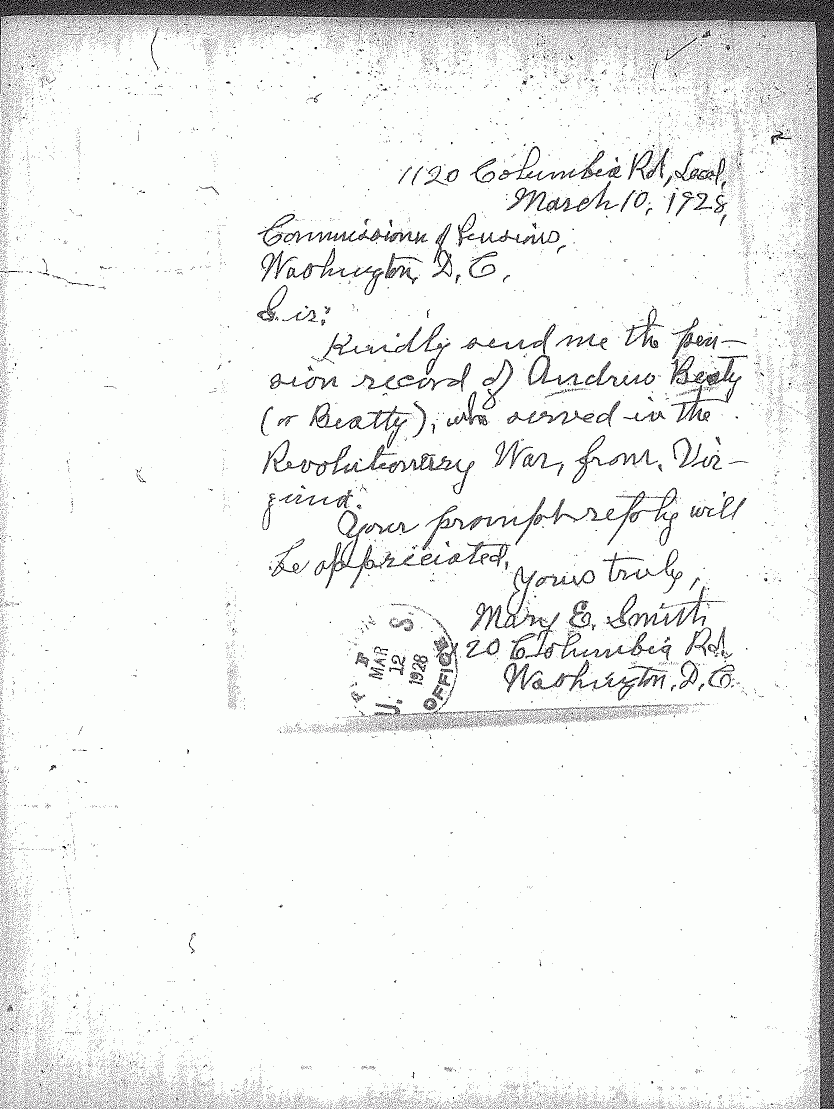 1120 Columbia Rd, Local,
March 10, 1928,
Commissioner of Pensions,
Washington, D. C.
Sir:
Kindly send me the pen-
sion record of Andrew Beaty
(or Beatty), who served in the
Revolutionary War, from Vir-
ginia.
Your prompt reply will
be appreciated.
Yours truly,
Mary E. Smith
20 Columbia Rd.
Washington, D.C.
U. S.
MAR
12
1928
OFFICE